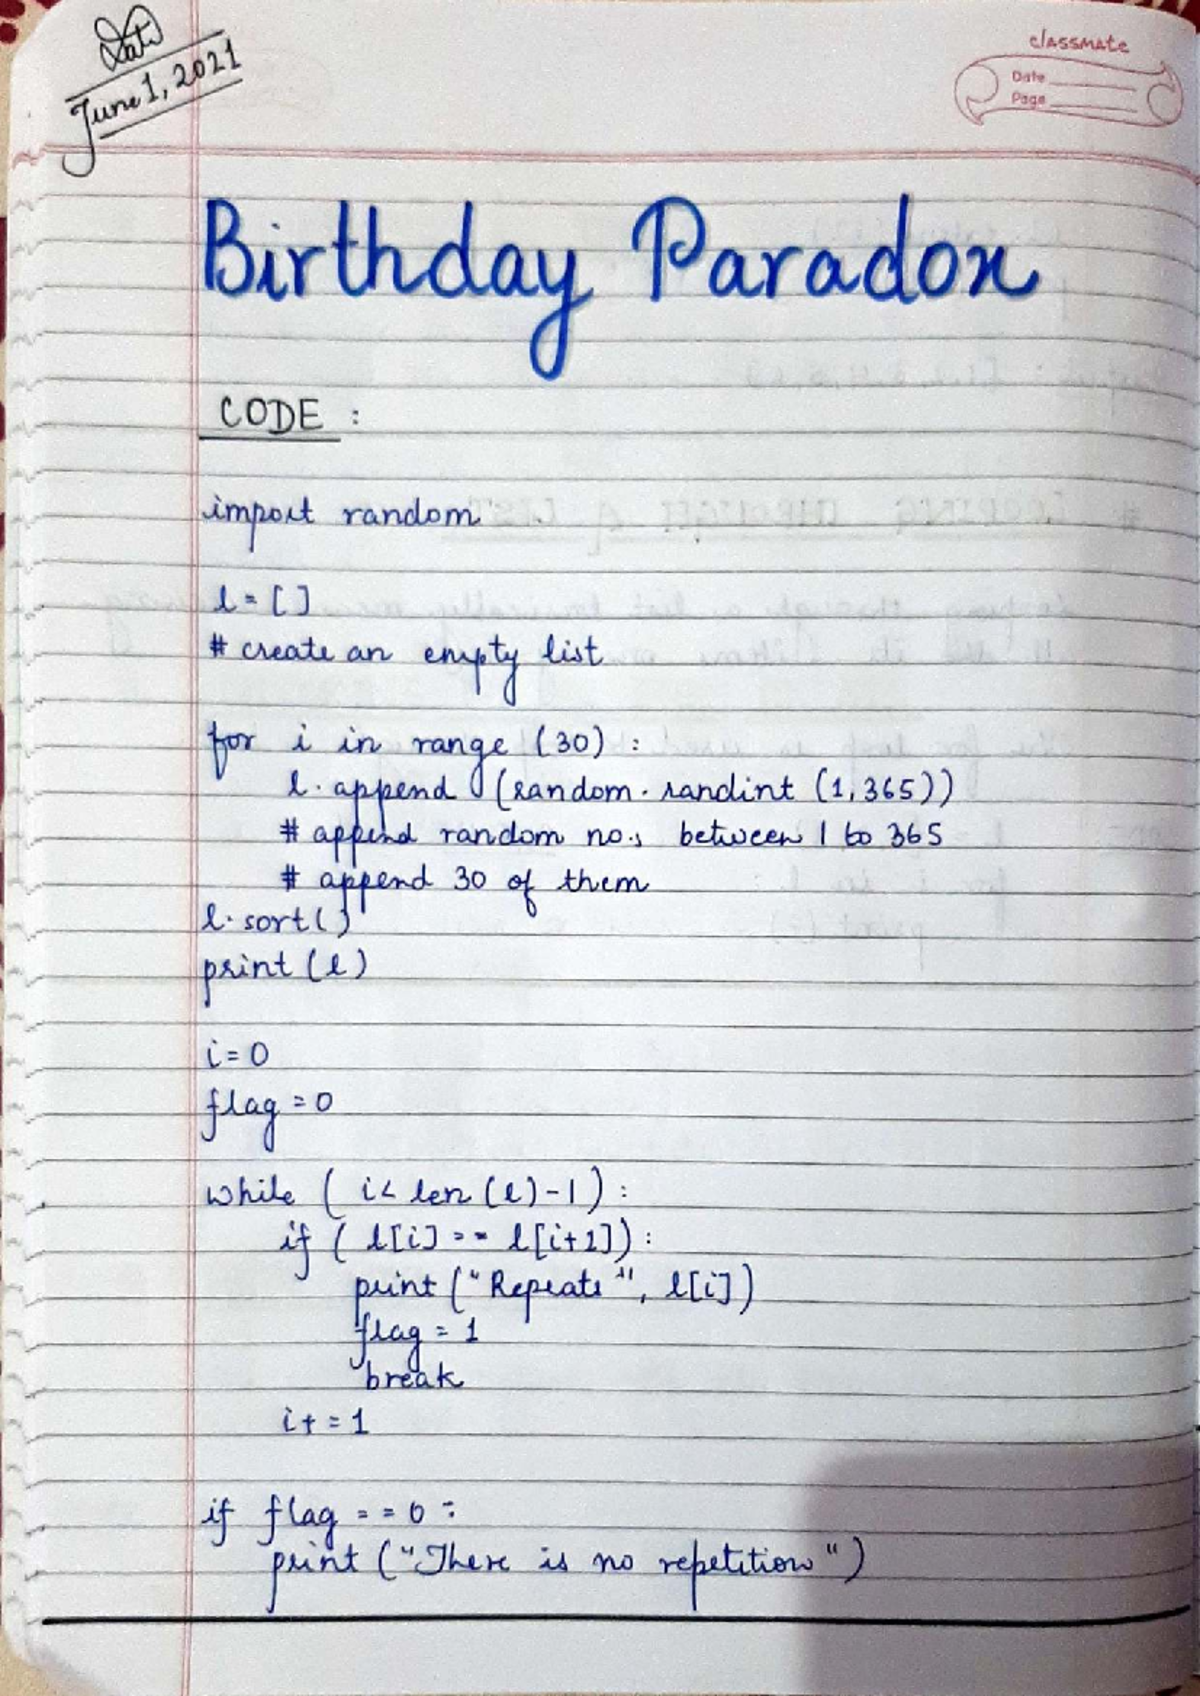 Date
June 1, 2021
classmate
Date
Page
Birthday Paradox
CODE :
import random
l = [ ]
# create an empty list
for i in range (30) :
l. append (random. randint (1, 365))
# append random no.s between 1 to 365
# append 30 of them
l. sort ( )
print (l)
i = 0
flag = 0
while ( i < len (l) - 1 ) :
if ( l[i] == l[i+1]) :
print ("Repeats", l[i])
flag = 1
break
i + = 1
if flag = = 0 :
print ("There is no repetition")